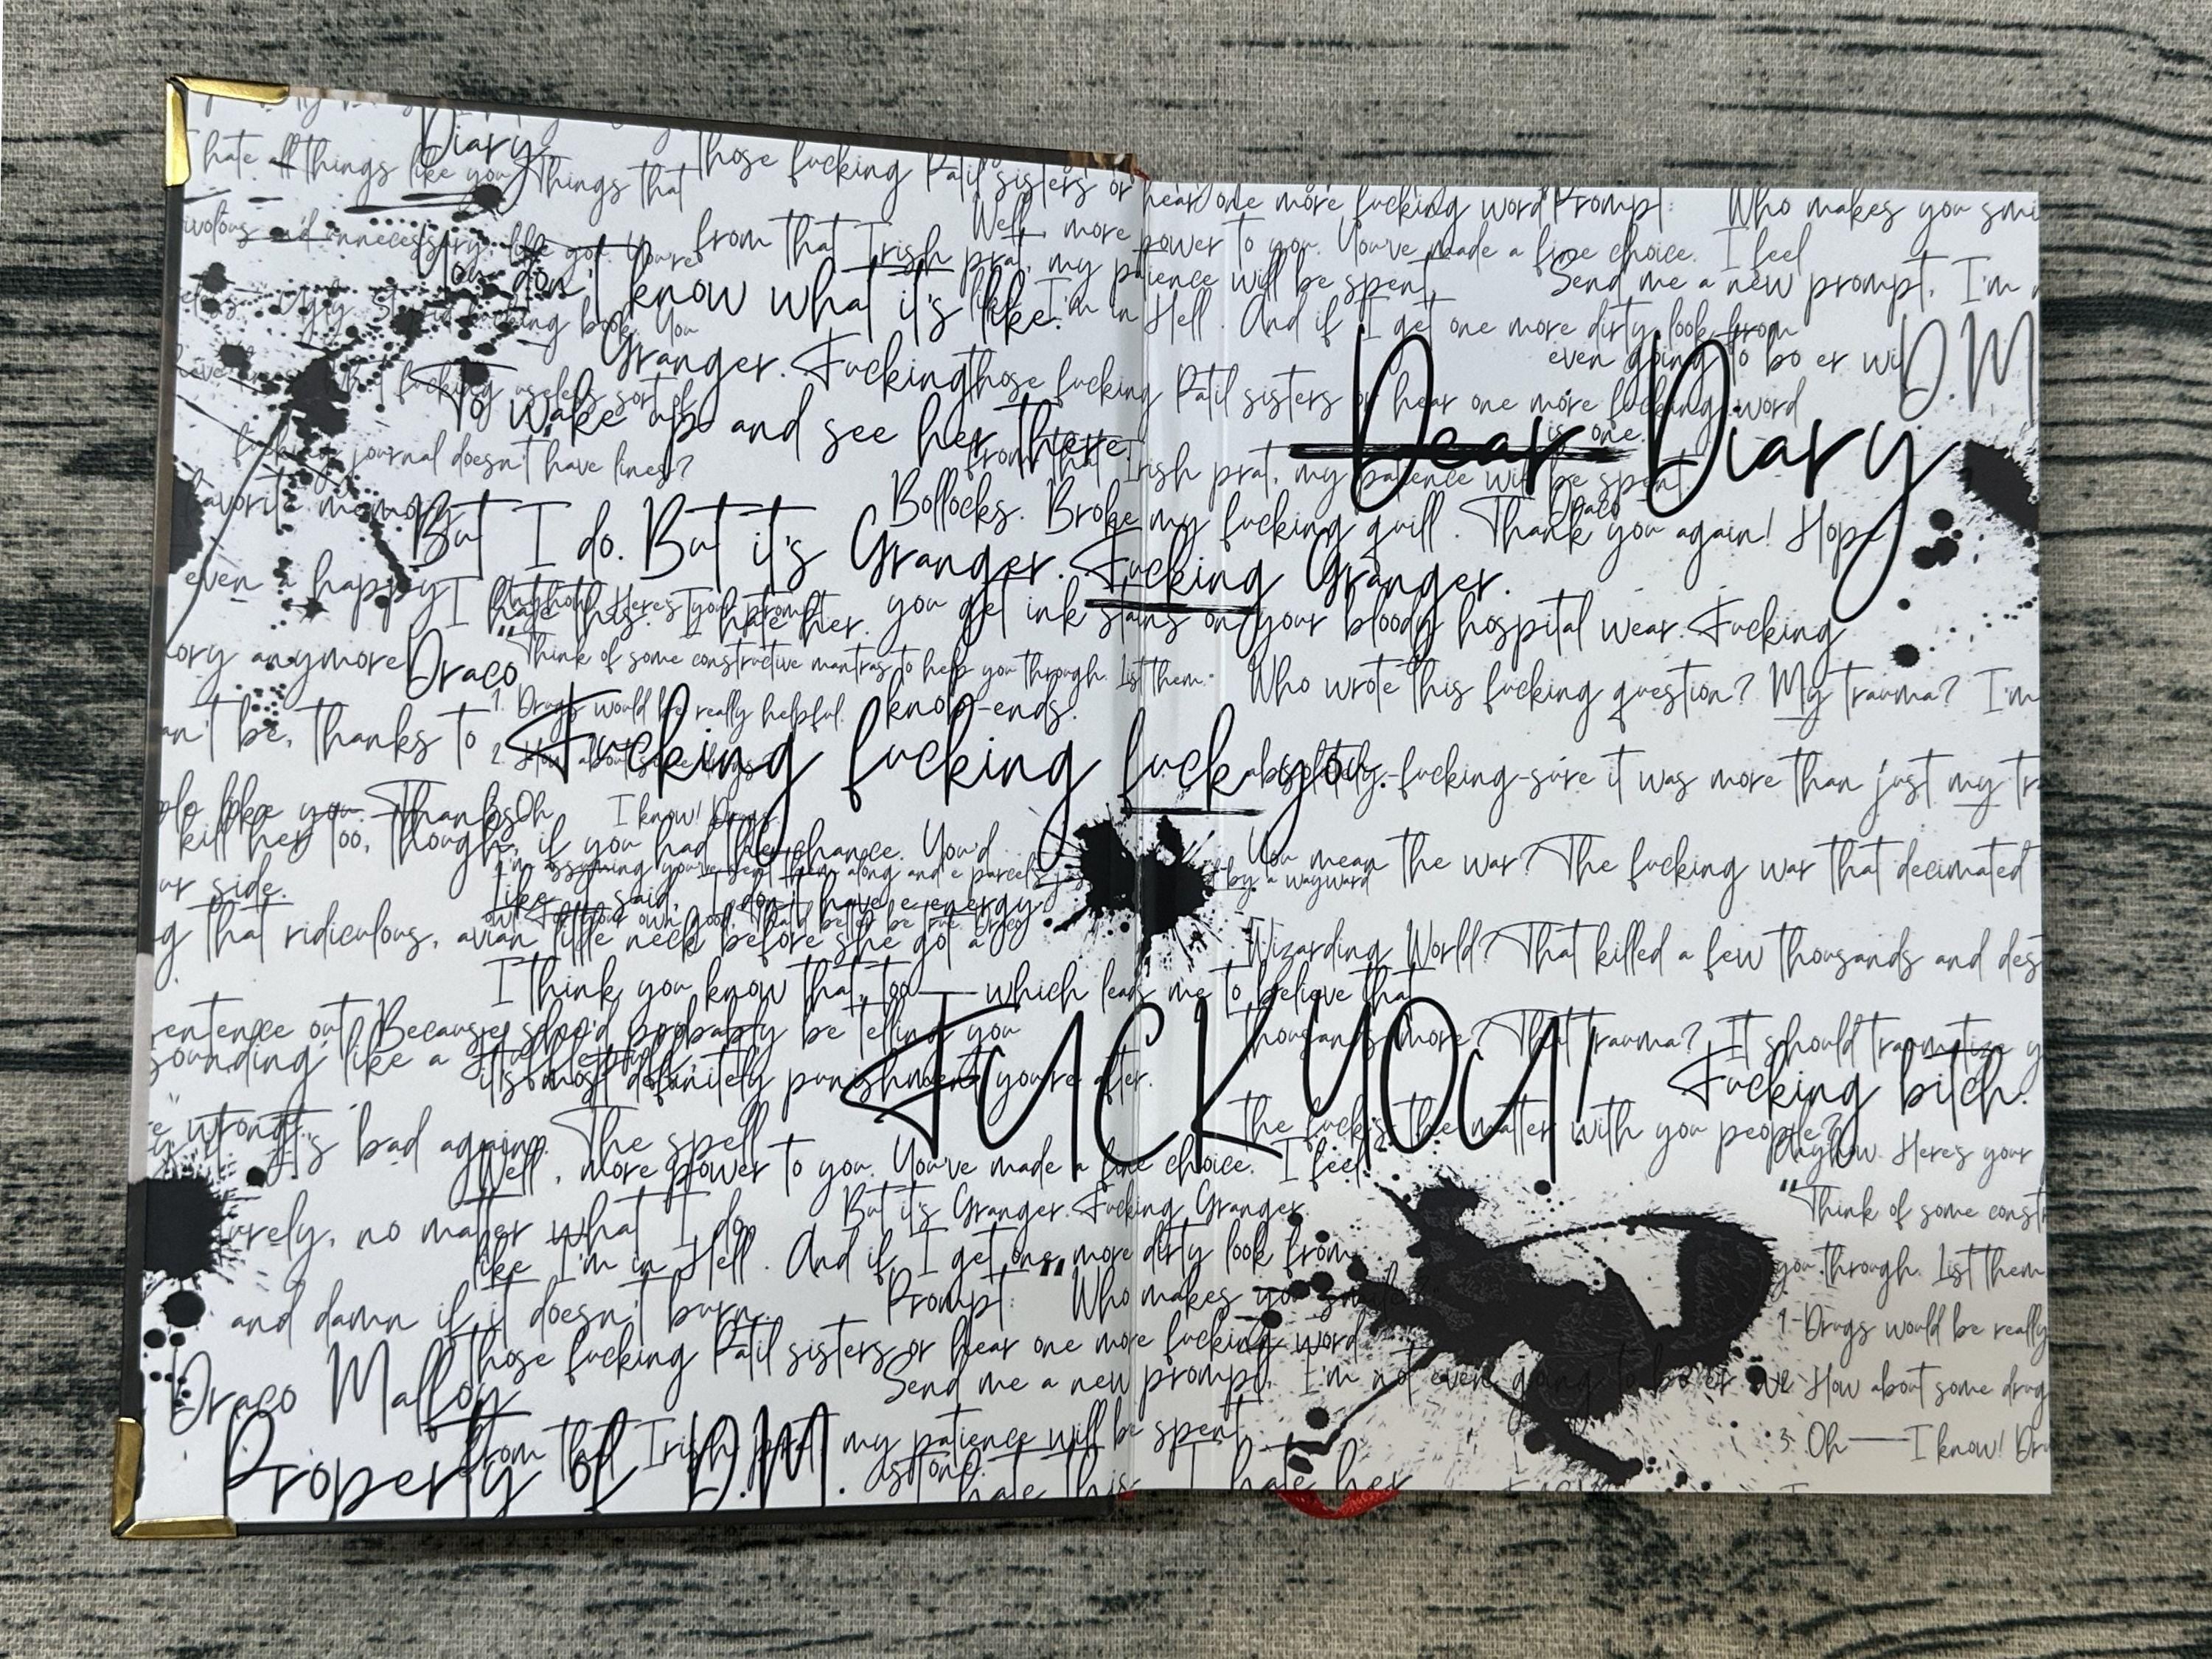 Diary
hate all things like you. Things that
those fucking Patil sisters or
hear one more fucking word
Prompt:
Who makes you smi
unnecessary, like you. You're
from that Irish prat, my patience will be spent.
Well, more power to you. You've made a fine choice. I feel
Send me a new prompt, I'm
You don't know what it's like.
I'm in Hell. And if I get one more dirty look from
Ugly, stupid fucking book. You
Granger. Fucking
even going to bo er wi
D.M
fucking useless sort of
those fucking Patil sisters or hear one more fucking word
To wake up and see her there.
Dear Diary
is one.
fucking journal doesn't have lines?
from that Irish prat, my patience will be spent.
favorite memory
Bollocks. Broke my fucking quill. Thank you again! Hope
Draco
But I do. But it's Granger. Fucking Granger.
even a happy
I hate this. I hate her.
Anyhow. Here's your prompt
you get ink stains on your bloody hospital wear. Fucking
ory anymore
Draco
"Think of some constructive mantras to help you through. List them."
Who wrote this fucking question? My trauma? I'm
1. Drugs would be really helpful.
knob-ends.
an't be, thanks to
Fucking fucking fuck you.
2. How about some drugs
absolutely-fucking-sure it was more than just my tr
like you. Thanks
3. Oh
I know! Drugs
kill her too, though, if you had the chance. You'd
You mean the war? The fucking war that decimated
I'm assuming you've sent them along and e parcels
by a wayward
ur side.
Like I said, I don't have e energy
own good, that'd better be true. Draco
g that ridiculous, avian little neck before she got a
Wizarding World? That killed a few thousands and des
I think you know that, too — which leads me to believe that
entence out. Because she'd probably be telling you
thousands more? That trauma? It should traumatize y
sounding like a
it's most definitely punishment you're after.
FUCK YOU!
Fucking bitch.
e wrong.
the fuck is the matter with you people?
It's bad again. The spell
Anyhow. Here's your
Well, more power to you. You've made a fine choice. I feel
"Think of some const
urely, no matter what I do.
But it's Granger. Fucking Granger.
like I'm in Hell. And if I get one more dirty look from
you through. List them
and damn if it doesn't burn.
Prompt:
"Who makes you smile
1. Drugs would be really
those fucking Patil sisters or hear one more fucking word
Draco Malfoy
Send me a new prompt, I'm not even going to bo er wi
2. How about some drug
from that Irish prat, my patience will be spent.
3. Oh — I know! Dr
Property of D.M.
hate this. I hate her